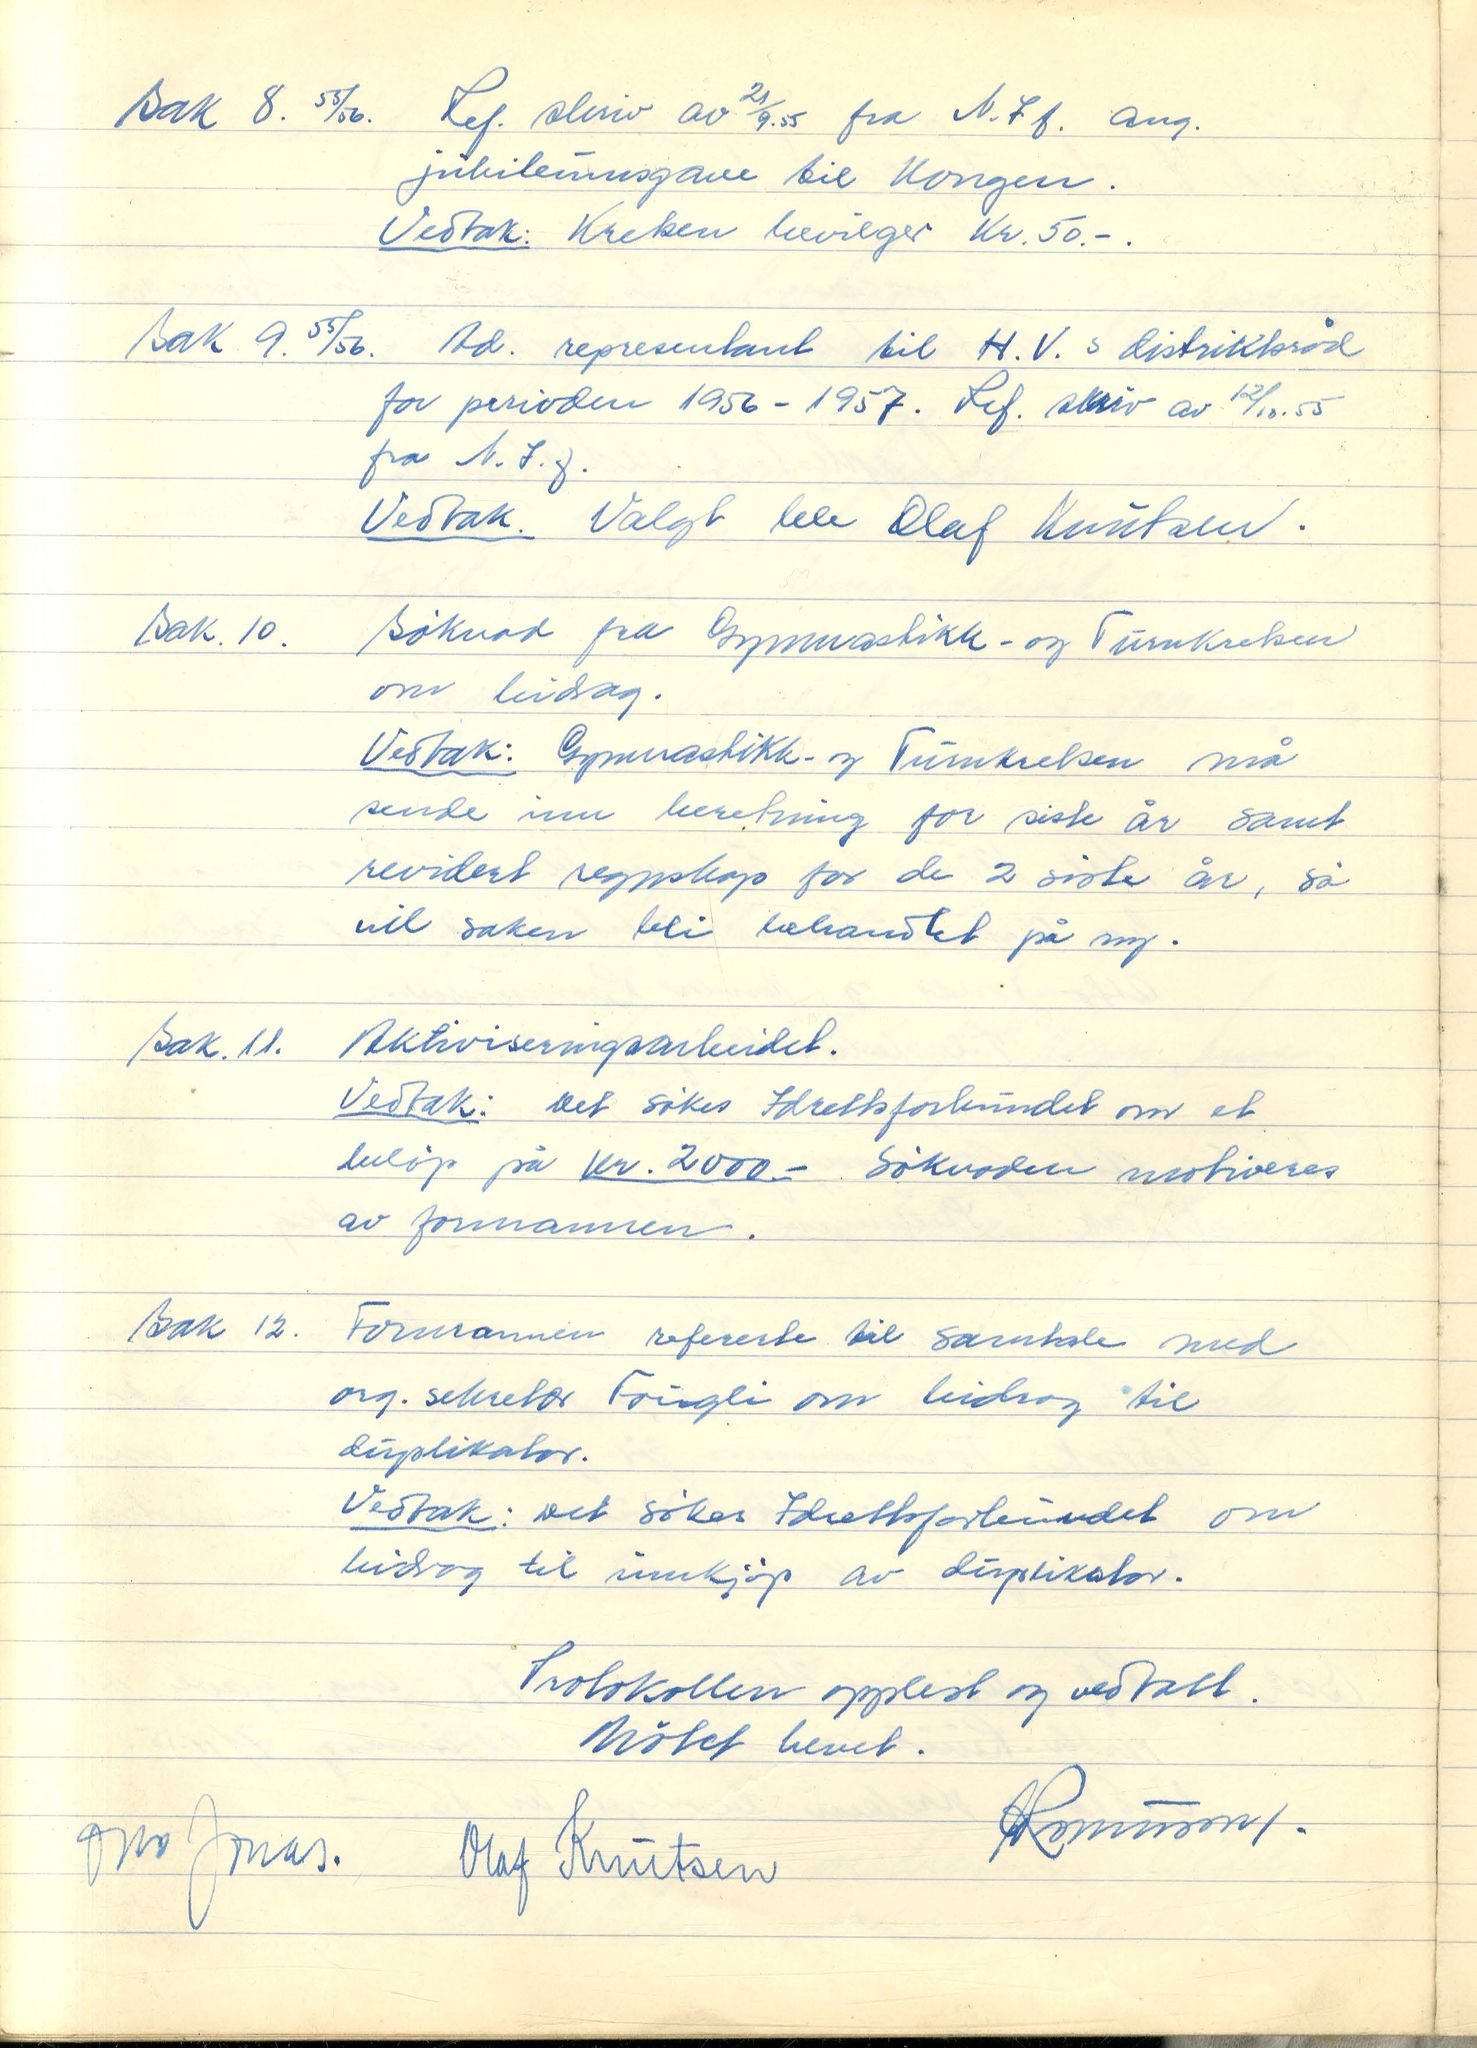 Sak 8. 55/56. Ref. skriv av 21/9.55 fra N.I.f. ang.
jubileumsgave til Kongen.
Vedtak: Kretsen bevilger Kr. 50.-.
Sak 9. 55/56. Ad. representant til H.V.s distriktsråd
for perioden 1956-1957. Ref. skriv av 12/10.55
fra N.I.f.
Vedtak. Valgt ble Olaf Knutsen.
Sak. 10. Søknad fra Gymnastikk- og Turnkretsen
om bidrag.
Vedtak: Gymnastikk- og Turnkretsen må
sende inn beretning for siste år samt
revidert regnskap for de 2 siste år, så
vil saken bli behandlet på ny.
Sak. 11. Aktiviseringsarbeidet.
Vedtak: Det søkes Idrettsforbundet om et
beløp på Kr. 2000.- Søknaden motiveres
av formannen.
Sak 12. Formannen refererte til samtale med
org. sekretær Fougli om bidrag til
duplikator.
Vedtak: Det søkes Idrettsforbundet om
bidrag til innkjøp av duplikator.
Protokollen opplest og vedtatt.
Møtet hevet.
Jonas. Olaf Knutsen